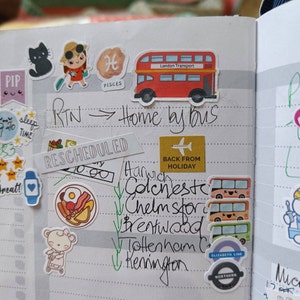 London Transport
PISCES
PIP
RTN → Home by bus
SLEEP TIME
RESCHEDULED
BACK FROM HOLIDAY
Harwich
Colchester
Chelmsford
Brentwood
Tottenham C
Kennington
ELIZABETH LINE
NORTHERN